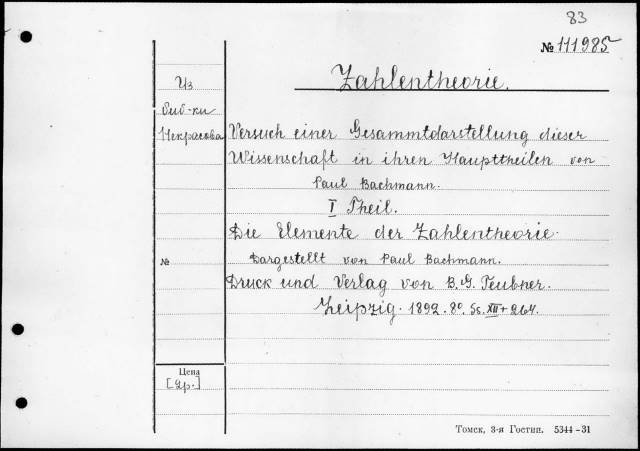 83
№ 111985
Zahlentheorie.
Из
биб-ки
Некрасова
Versuch einer Gesammtdarstellung dieser
Wissenschaft in ihren Haupttheilen von
Paul Bachmann.
I Theil.
Die Elemente der Zahlentheorie.
№
Dargestellt von Paul Bachmann.
Druck und Verlag von B. G. Teubner.
Leipzig. 1892. 8º. Ss. XII + 264.
Цена
[др.]
Томск, 3-я Гостип. 5344-31